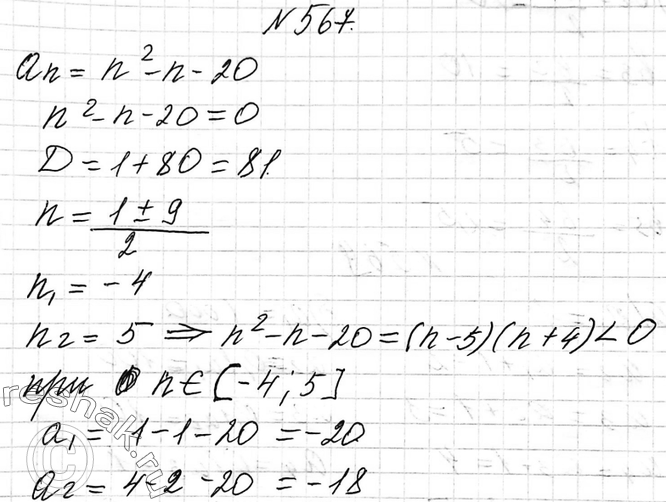 №567.
an = n² - n - 20
n² - n - 20 = 0
D = 1 + 80 = 81.
n = (1 ± 9)/2
n₁ = -4
n₂ = 5 ⇒ n² - n - 20 = (n-5)(n+4) < 0
при n ∈ [-4; 5]
a₁ = 1 - 1 - 20 = -20
a₂ = 4 - 2 - 20 = -18
reshak.ru